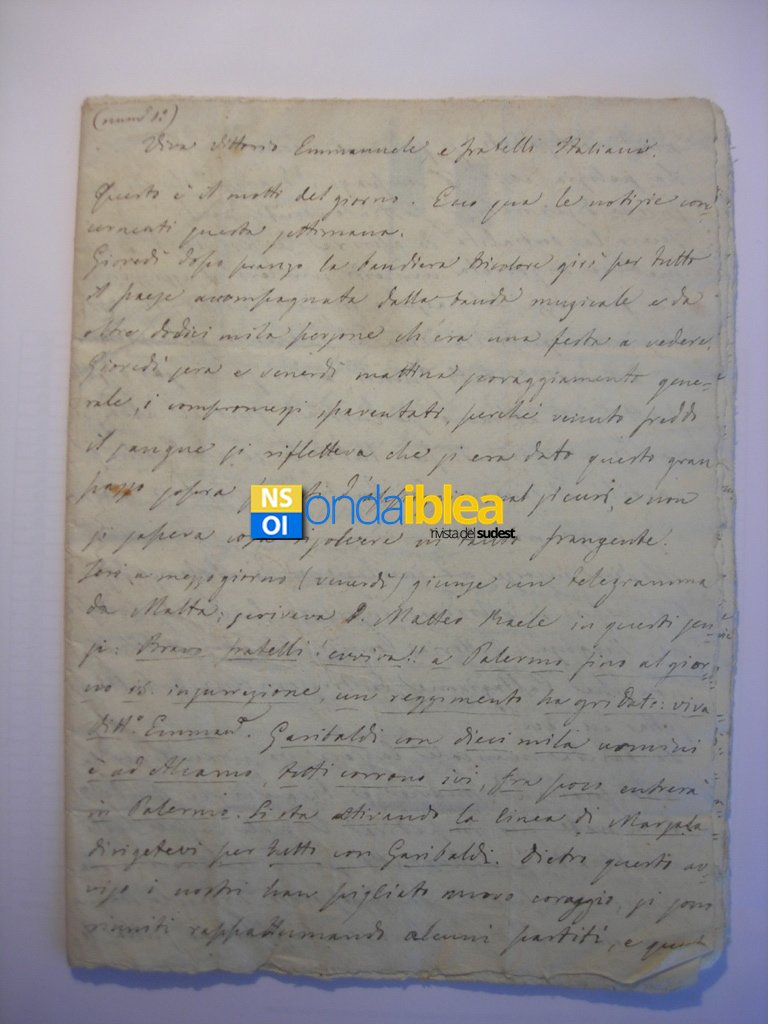 (num° 1°)
Viva Vittorio Emmanuele e fratelli Italiani.
Questo è il motto del giorno. Ecco qua le notizie con=
cernenti questa settimana.
Giovedì dopo pranzo la bandiera tricolore girò per tutto
il paese accompagnata dalla banda musicale e da
oltre dodici mila persone ch'era una festa a vedere.
Giovedì sera e venerdì mattina scoraggiamento gene=
rale, i compromessi spaventati, perché venuto freddo
il sangue si rifletteva che si era dato questo gran
passo sicuri, e non
si sapeva cosa risolvere in frangente.
Jeri a mezzogiorno (venerdì) giunse un telegramma
da Malta; scriveva D. Matteo Raele in questi sen=
si: Bravo fratelli! evviva!! a Palermo sino al gior=
no 15: insurrezione, un reggimento ha gridato: viva
Vitt.° Emman. Garibaldi con dieci mila uomini
è ad Alcamo, tutti corrono ivi, fra poco entrerà
in Palermo. Si sta attirando la linea di Marsala
dirigetevi per tutto con Garibaldi. Dietro questo av=
viso i nostri han pigliato nuovo coraggio, si sono
riuniti rappattumando alcuni partiti, e
NS
OI
ondaiblea
rivista del sudest